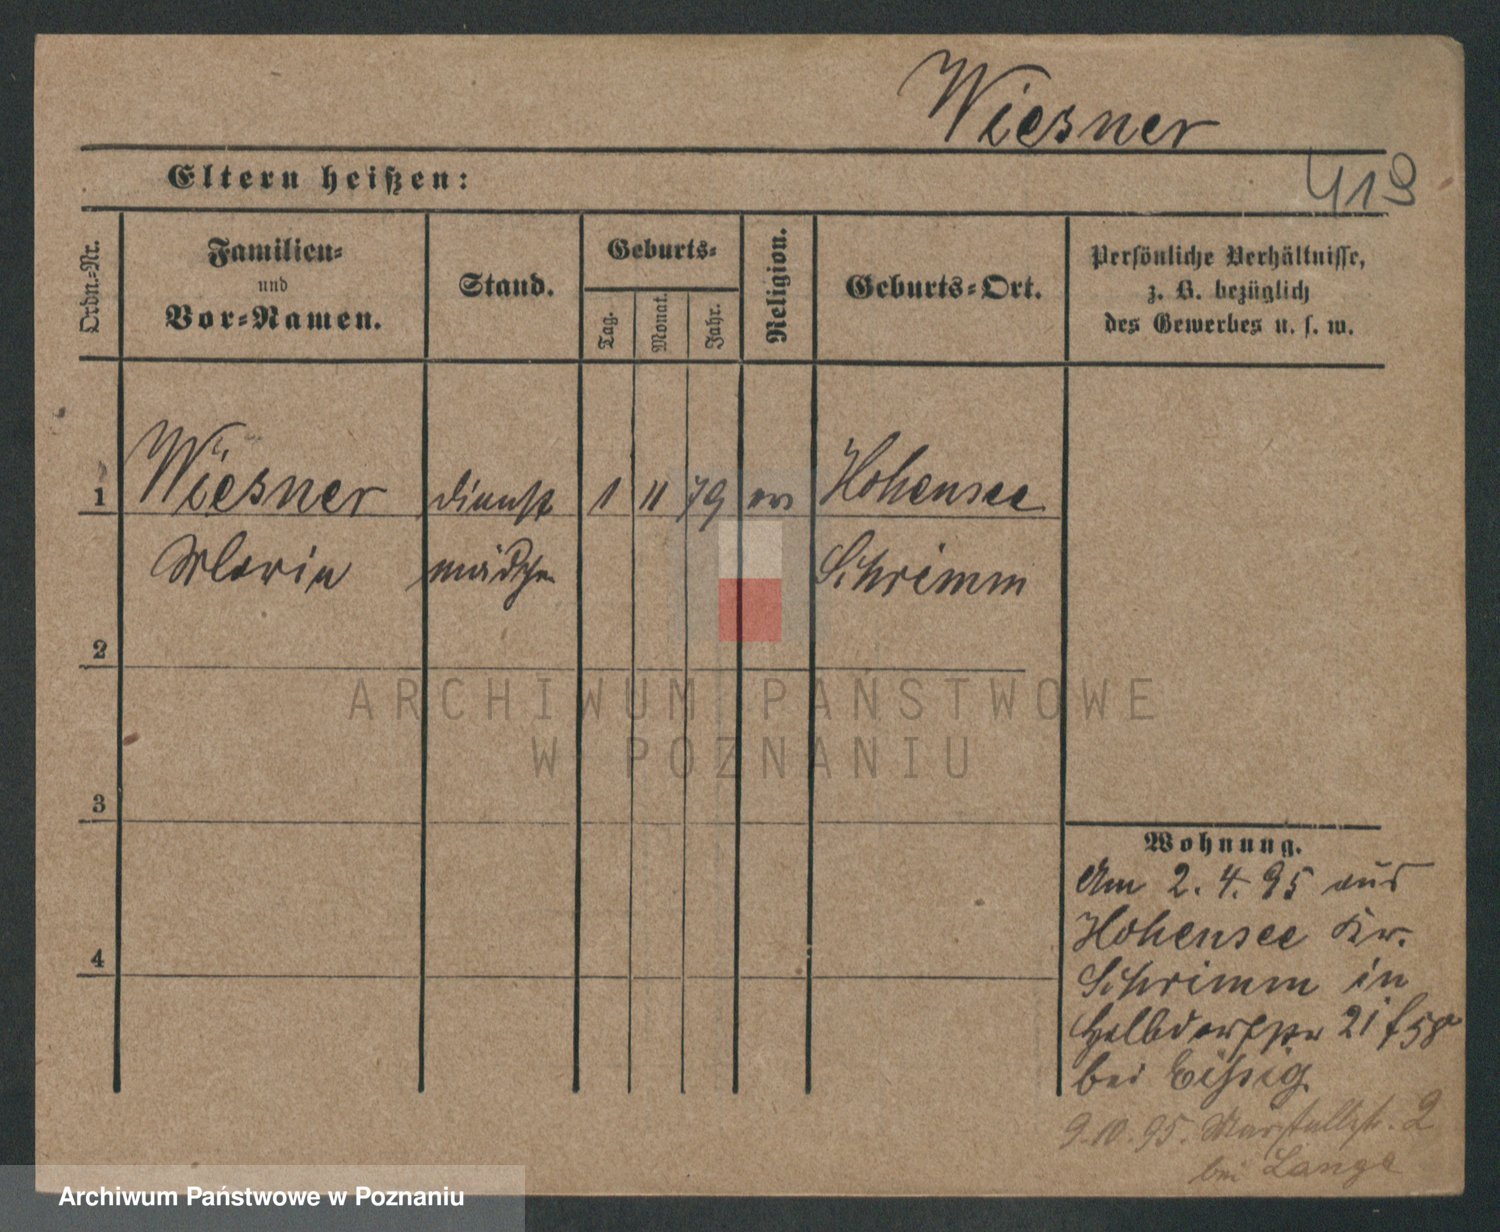 Wiesner
413
Eltern heißen:
Ordn.-Nr.
Familien-
und
Vor-Namen.
Stand.
Geburts-
Tag.
Monat.
Jahr.
Religion.
Geburts-Ort.
Persönliche Verhältnisse,
z. B. bezüglich
des Gewerbes u. s. w.
1 Wiesner dienst 1 11 79 ev Hohensee
Maria mädchen Schrimm
2
3
4
Wohnung.
Am 2. 4. 95 aus
Hohensee Kr.
Schrimm in
Halbdorfstr 21
bei
9.10.95. Marstallstr. 2
bei Lange
ARCHIWUM PAŃSTWOWE
W POZNANIU
Archiwum Państwowe w Poznaniu